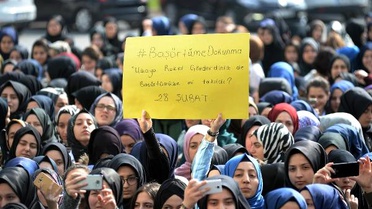 #BaşörtümeDokunma
"Uzaya Roket Gönderdiniz de
Başörtüsüne mi takıldı?"
28 ŞUBAT